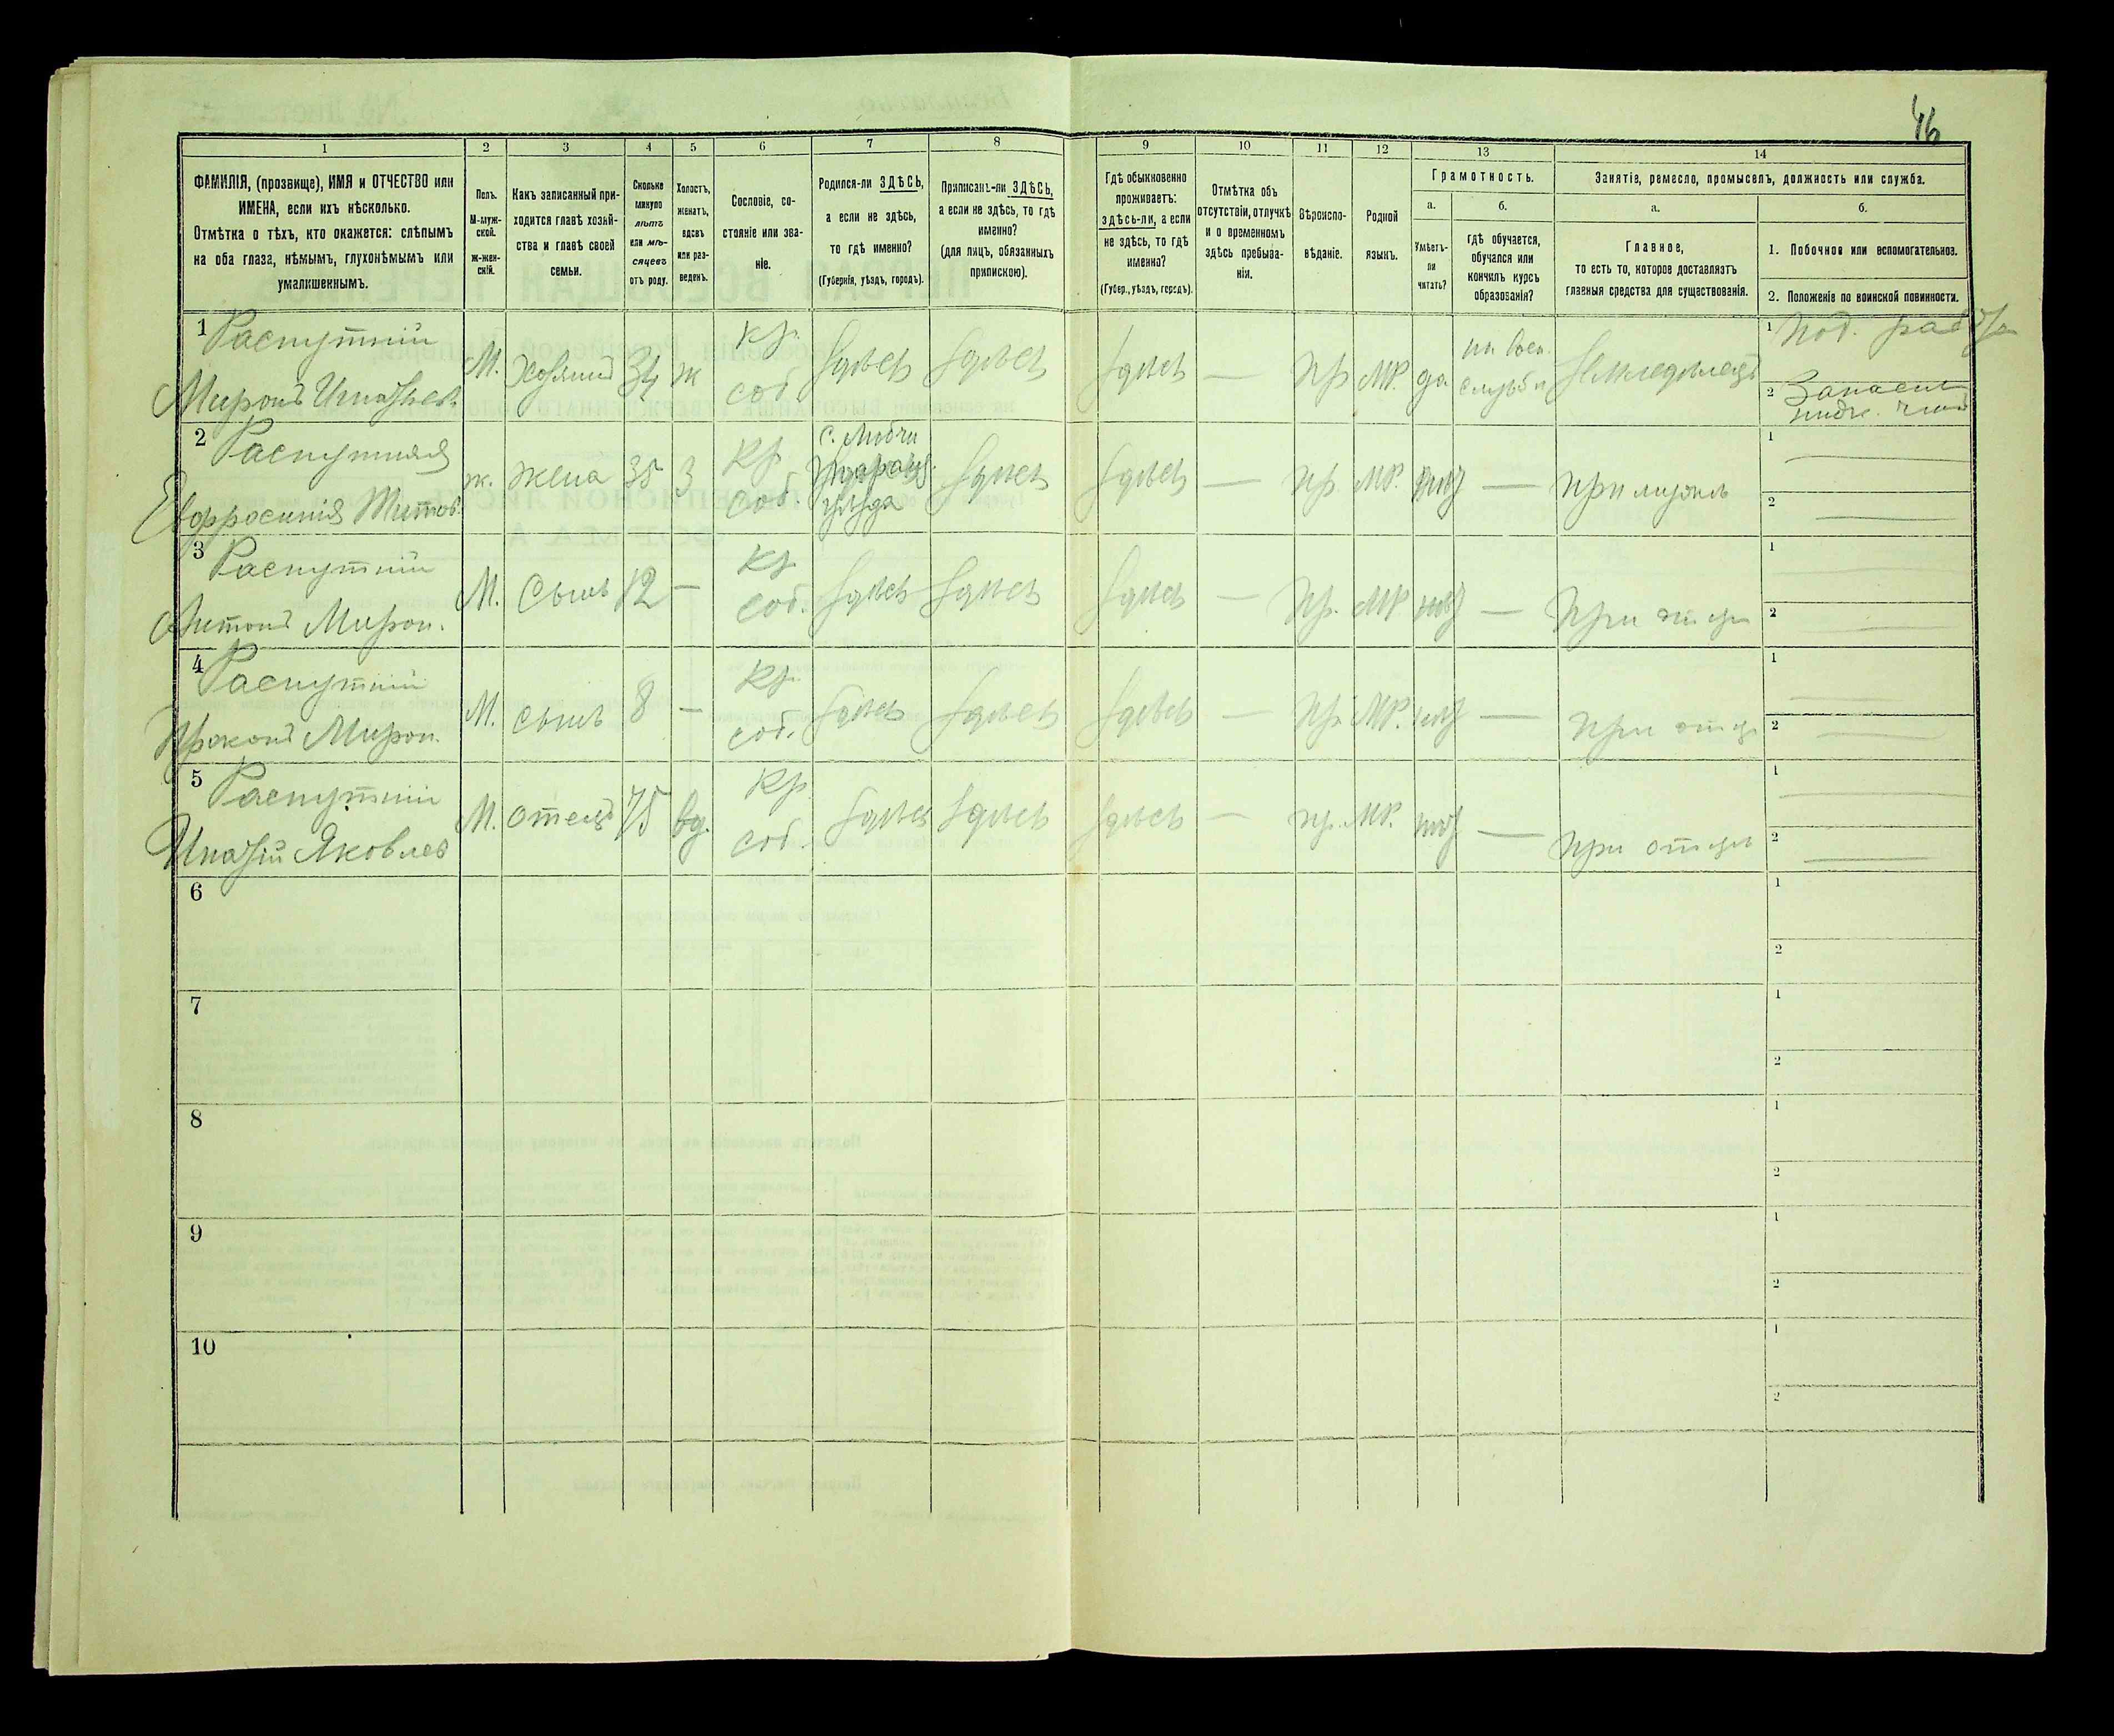 46
1 2 3 4 5 6 7 8 9 10 11 12 13 14
ФАМИЛІЯ, (прозвище), ИМЯ и ОТЧЕСТВО или
ИМЕНА, если ихъ нѣсколько.
Отмѣтка о тѣхъ, кто окажется: слѣпымъ
на оба глаза, нѣмымъ, глухонѣмымъ или
умалишеннымъ.
Полъ.
М-муж-
ской.
ж-жен-
скій.
Какъ записанный при-
ходится главѣ хозяй-
ства и главѣ своей
семьи.
Сколько
минуло
лѣтъ
или мѣ-
сяцевъ
отъ роду.
Холостъ,
женатъ,
вдовъ
или раз-
веденъ.
Сословіе, со-
стояніе или зва-
ніе.
Родился-ли ЗДѢСЬ,
а если не здѣсь,
то гдѣ именно?
(Губернія, уѣздъ, городъ).
Приписанъ-ли ЗДѢСЬ,
а если не здѣсь, то гдѣ
именно?
(для лицъ, обязанныхъ
припискою).
Гдѣ обыкновенно
проживаетъ:
здѣсь-ли, а если
не здѣсь, то гдѣ
именно?
(Губер., уѣздъ, городъ).
Отмѣтка объ
отсутствіи, отлучкѣ
и о временномъ
здѣсь пребыва-
ніи.
Вѣроиспо-
вѣданіе.
Родной
языкъ.
Грамотность.
а. б.
Умѣетъ-
ли
читать?
гдѣ обучается,
обучался или
кончилъ курсъ
образованія?
Занятіе, ремесло, промыселъ, должность или служба.
а. б.
Главное,
то есть то, которое доставляетъ
главныя средства для существованія.
1. Побочное или вспомогательное.
2. Положеніе по воинской повинности.
1 Распутній
Миронъ Игнатьев.
М. Хозяинъ 34 ж
Кр. соб.
здѣсь здѣсь здѣсь — Пр МР. да
на воен.
службѣ
Земледѣлецъ
1 Под.
2 Запасн.
нижн. чинъ
2 Распутняя
Евфросинія Титов.
ж. Жена 35 З
Кр. соб.
с.
уѣзда
здѣсь здѣсь — Пр. МР. нѣт — При мужѣ
1 —
2 —
3 Распутній
Антонъ Мирон.
М. Сынъ 12 —
Кр. соб.
здѣсь здѣсь здѣсь — Пр. МР нѣт — При отцѣ
1 —
2 —
4 Распутній
Мирон.
М. сынъ 8 —
Кр. соб.
здѣсь здѣсь здѣсь — Пр МР. нѣт — При отцѣ
1 —
2 —
5 Распутній
Яковлев
М. отецъ 75 вд.
Кр. соб.
здѣсь здѣсь здѣсь — пр. МР. нѣт — При отцѣ
1 —
2 —
6 1
2
7 1
2
8 1
2
9 1
2
10 1
2